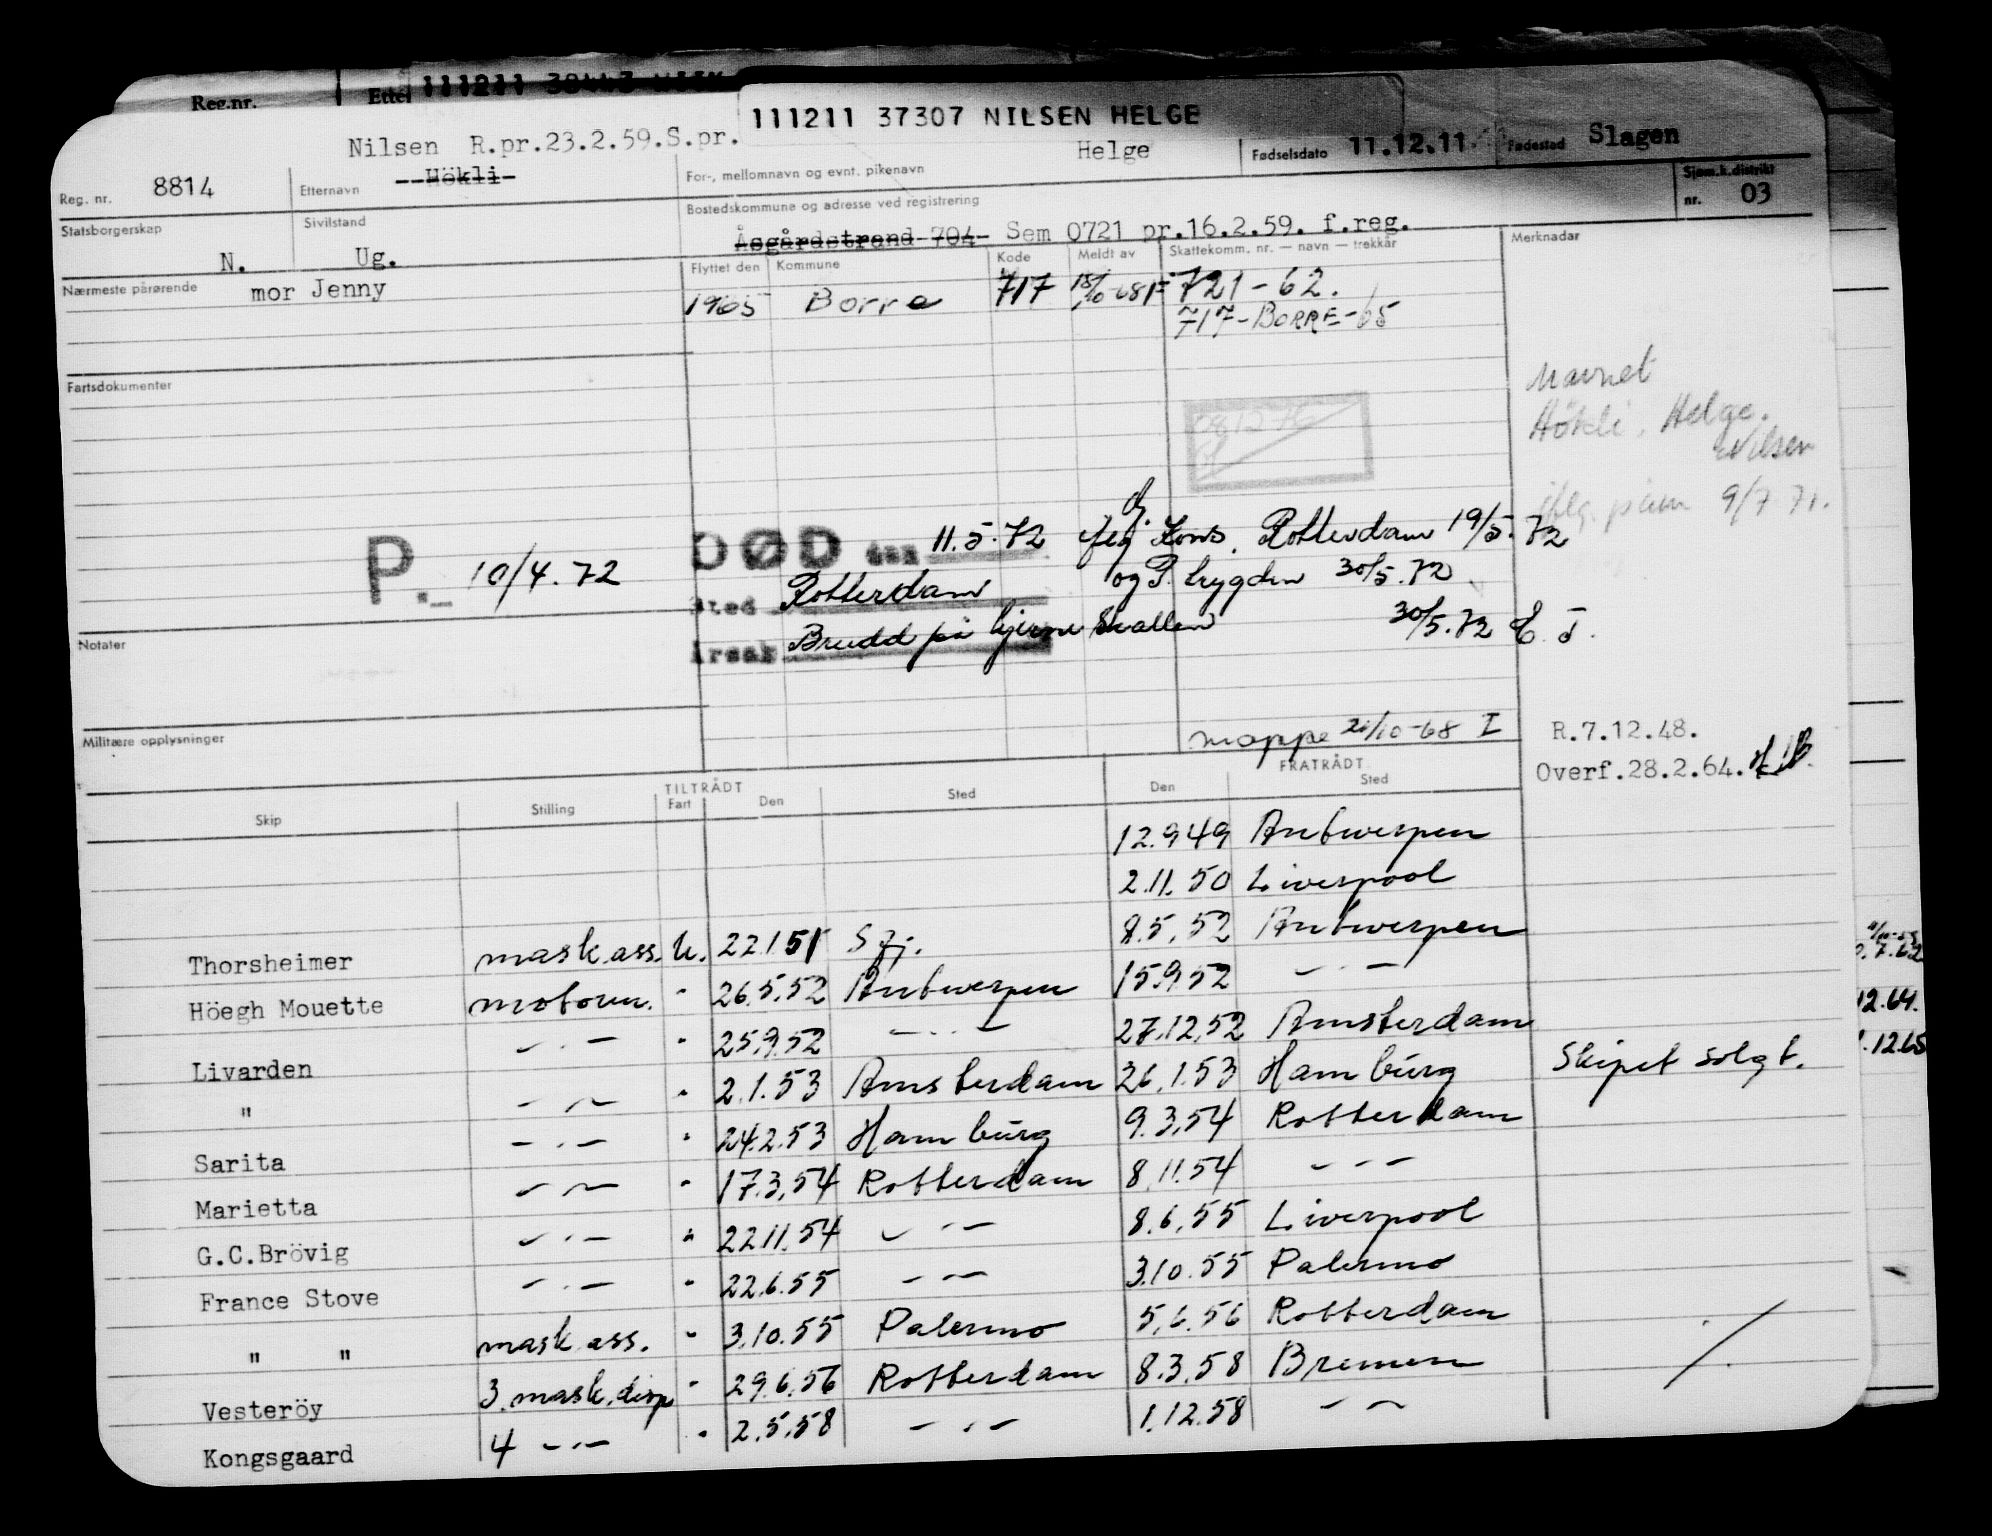 Reg.nr.
111211 37307 NILSEN HELGE
Nilsen R.pr.23.2.59.S.pr. Helge Fødselsdato 11.12.11 Fødested Slagen
Reg. nr. 8814 Etternavn Hökli For-, mellomnavn og evnt. pikenavn
Sjøm.k.distrikt nr. 03
Statsborgerskap N. Sivilstand Ug.
Bostedskommune og adresse ved registrering
Åsgårdstrand 704 Sem 0721 pr.16.2.59. f.reg.
Nærmeste pårørende mor Jenny
Flyttet den Kommune Kode Meldt av Skattekomm. nr. — navn — trekkår Merknadar
1965 Borre 717 18/10-68 F 721-62.
717-BORRE-65
Fartsdokumenter
Navnet
Hökli, Helge.
Nilsen
9/7 71.
DØD den 11.5.72 Kons. Rotterdam 19/5.72
P. 10/4.72
Sted Rotterdam og P. trygden 30/5.72
Årsak Brudd på hjerneskallen 30/5.72 E. J.
Notater
Militære opplysninger
moppe 21/10-68 I
R.7.12.48.
Overf.28.2.64.
TILTRÅDT FRATRÅDT
Skip Stilling Fart Den Sted Den Sted
12.9 49 Antwerpen
2.11.50 Liverpool
Thorsheimer mask.ass. U. 22.1.51 Sfj. 8.5.52 Antwerpen
Höegh Mouette motorm. " 26.5.52 Antwerpen 15.9.52 — " —
Livarden — " — " 25.9.52 — " — 27.12.52 Amsterdam
" — " — " 2.1.53 Amsterdam 26.1.53 Hamburg Skipet solgt.
Sarita — " — " 24.2.53 Hamburg 9.3.54 Rotterdam
Marietta — " — " 17.3.54 Rotterdam 8.11.54 — " —
G.C.Brövig — " — " 22.11.54 — " — 8.6.55 Liverpool
France Stove — " — " 22.6.55 — " — 3.10.55 Palermo
" " mask.ass. " 3.10.55 Palermo 5.6.56 Rotterdam
Vesteröy 3.mask.disp " 29.6.56 Rotterdam 8.3.58 Bremen
Kongsgaard 4 — " — " 2.5.58 — " — 1.12.58 — " —